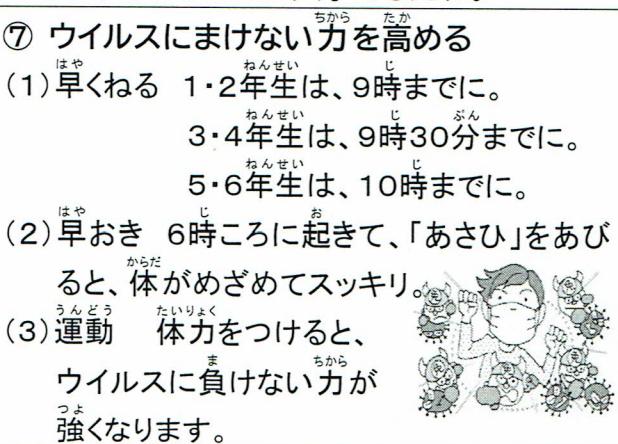 ⑦ ウイルスにまけない力を高める
(1)早くねる 1・2年生は、9時までに。
3・4年生は、9時30分までに。
5・6年生は、10時までに。
(2)早おき 6時ころに起きて、「あさひ」をあび
ると、体がめざめてスッキリ。
(3)運動 体力をつけると、
ウイルスに負けない力が
強くなります。